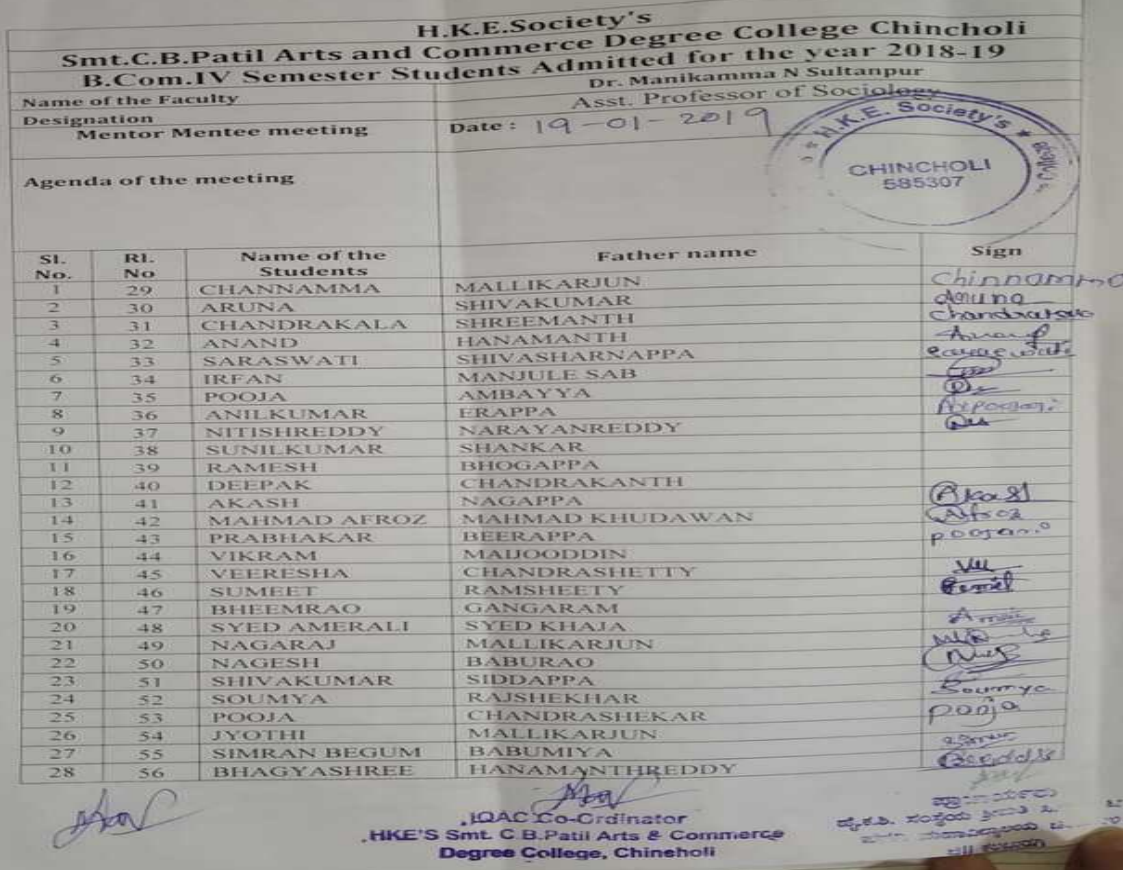 H.K.E.Society's
Smt.C.B.Patil Arts and Commerce Degree College Chincholi
B.Com.IV Semester Students Admitted for the year 2018-19
Name of the Faculty Dr. Manikamma N Sultanpur
Designation Asst. Professor of Sociology
Mentor Mentee meeting Date : 19-01-2019
H.K.E. Society's
CHINCHOLI
585307
Agenda of the meeting
Sl. No. Rl. No Name of the Students Father name Sign
1 29 CHANNAMMA MALLIKARJUN Chinnamma
2 30 ARUNA SHIVAKUMAR Aruna
3 31 CHANDRAKALA SHREEMANTH
4 32 ANAND HANAMANTH
5 33 SARASWATI SHIVASHARNAPPA
6 34 IRFAN MANJULE SAB
7 35 POOJA AMBAYYA
8 36 ANILKUMAR ERAPPA
9 37 NITISHREDDY NARAYANREDDY
10 38 SUNILKUMAR SHANKAR
11 39 RAMESH BHOGAPPA
12 40 DEEPAK CHANDRAKANTH
13 41 AKASH NAGAPPA Akash
14 42 MAHMAD AFROZ MAHMAD KHUDAWAN Afroz
15 43 PRABHAKAR BEERAPPA
16 44 VIKRAM MAIJOODDIN
17 45 VEERESHA CHANDRASHETTY
18 46 SUMEET RAMSHEETY
19 47 BHEEMRAO GANGARAM
20 48 SYED AMERALI SYED KHAJA
21 49 NAGARAJ MALLIKARJUN
22 50 NAGESH BABURAO
23 51 SHIVAKUMAR SIDDAPPA
24 52 SOUMYA RAJSHEKHAR Soumya
25 53 POOJA CHANDRASHEKAR pooja
26 54 JYOTHI MALLIKARJUN
27 55 SIMRAN BEGUM BABUMIYA
28 56 BHAGYASHREE HANAMANTHREDDY
IQAC Co-Ordinator
HKE'S Smt. C.B.Patil Arts & Commerce
Degree College, Chincholi